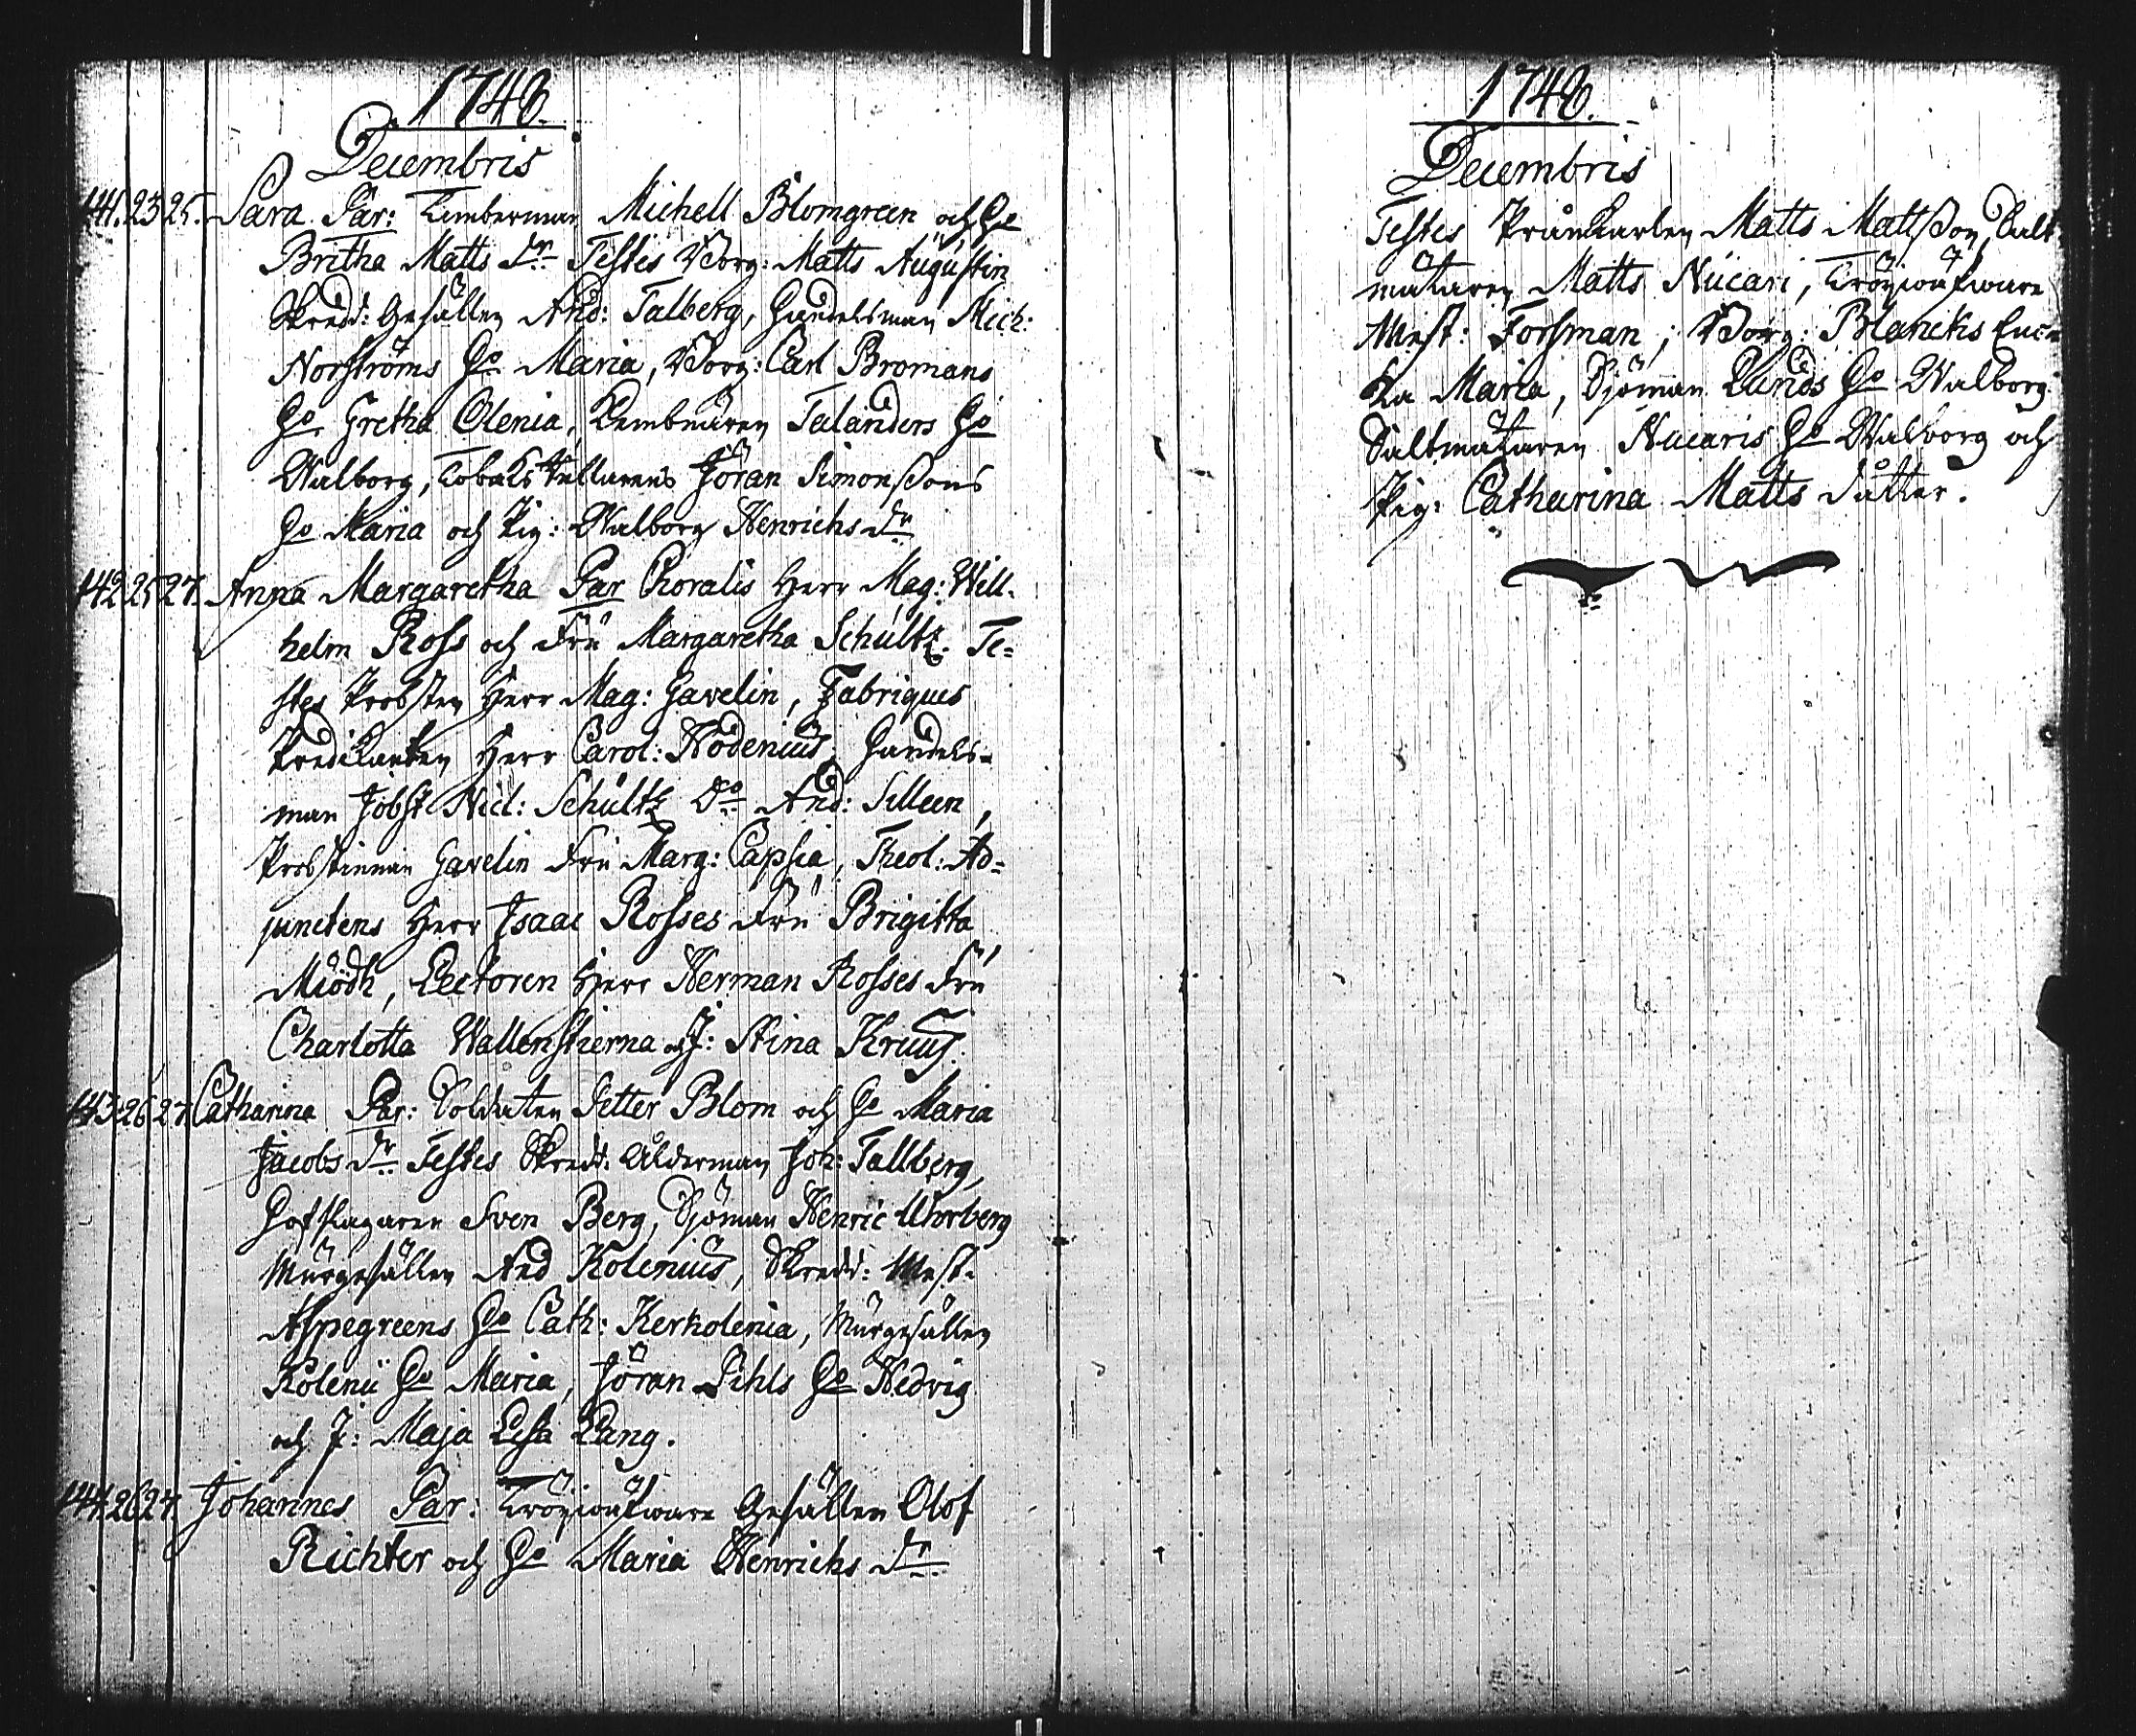 1748.
Decembris
141. 23 25. Sara. Par: Timberman Michell Blomgreen och Ho
Britha Matts dr Testes Borg: Matts Augustin
Skredd: Gesällen And: Talberg, Handelsman Mich:
Norströms Ho Maria, Borg: Carl Bromans
Ho Gretha Olenia, Telanders Ho
Walborg, Tobaks Jöran Simonssons
Ho Maria och Pig: Walborg Henrichs dr
142 25 27. Anna Margaretha Par Choralis Herr Mag: Will-
helm Ross och Fru Margaretha Schultz. Te=
stes Probsten Herr Mag: Gavelin, Fabriques
Predikanten Herr Carol: Nodenius, Handels-
man Jobst Nicl: Schultz Do And: Silleen,
Probstinnan Gavelin Fru Marg: Capsia, Theol: Ad=
junctens Herr Isaac Rosses Fru Brigitta
Miödh, Lectoren Herr Herman Rosses Fru
Charlotta Wallenstierna och J: Stina Kruus.
143 26 27. Catharina Par: Soldaten Petter Blom och Ho Maria
Jacobs dr Testes Skredd: Ålderman Joh: Tallberg,
Hofslagaren Sven Berg, Sjöman Henric Uhrberg
Murgesällen And Kolenius, Skredd: Mest.
Aspegreens Ho Cath: Kerkolenia, Murgesällen
Kolenii Ho Maria, Jöran Pihls Ho Hedvig
och J: Maja Lisa Lang.
144. 26 27. Johannes Par: Gesällen Olof
Richter och Ho Maria Henrichs dr
1748.
Decembris
Testes Prånkarlen Matts Mattsson, Salt-
mätaren Matts Nucari,
Mest: Forsman, Borg: Blancks Enc-
ka Maria, Sjöman Lunds Ho Walborg
Saltmätaren Nucaris Ho Walborg och
Pig: Catharina Matts dåtter.